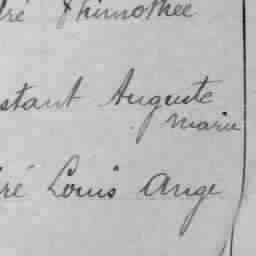 dré Thimothée
stant Auguste
Marie
ré Louis Ange